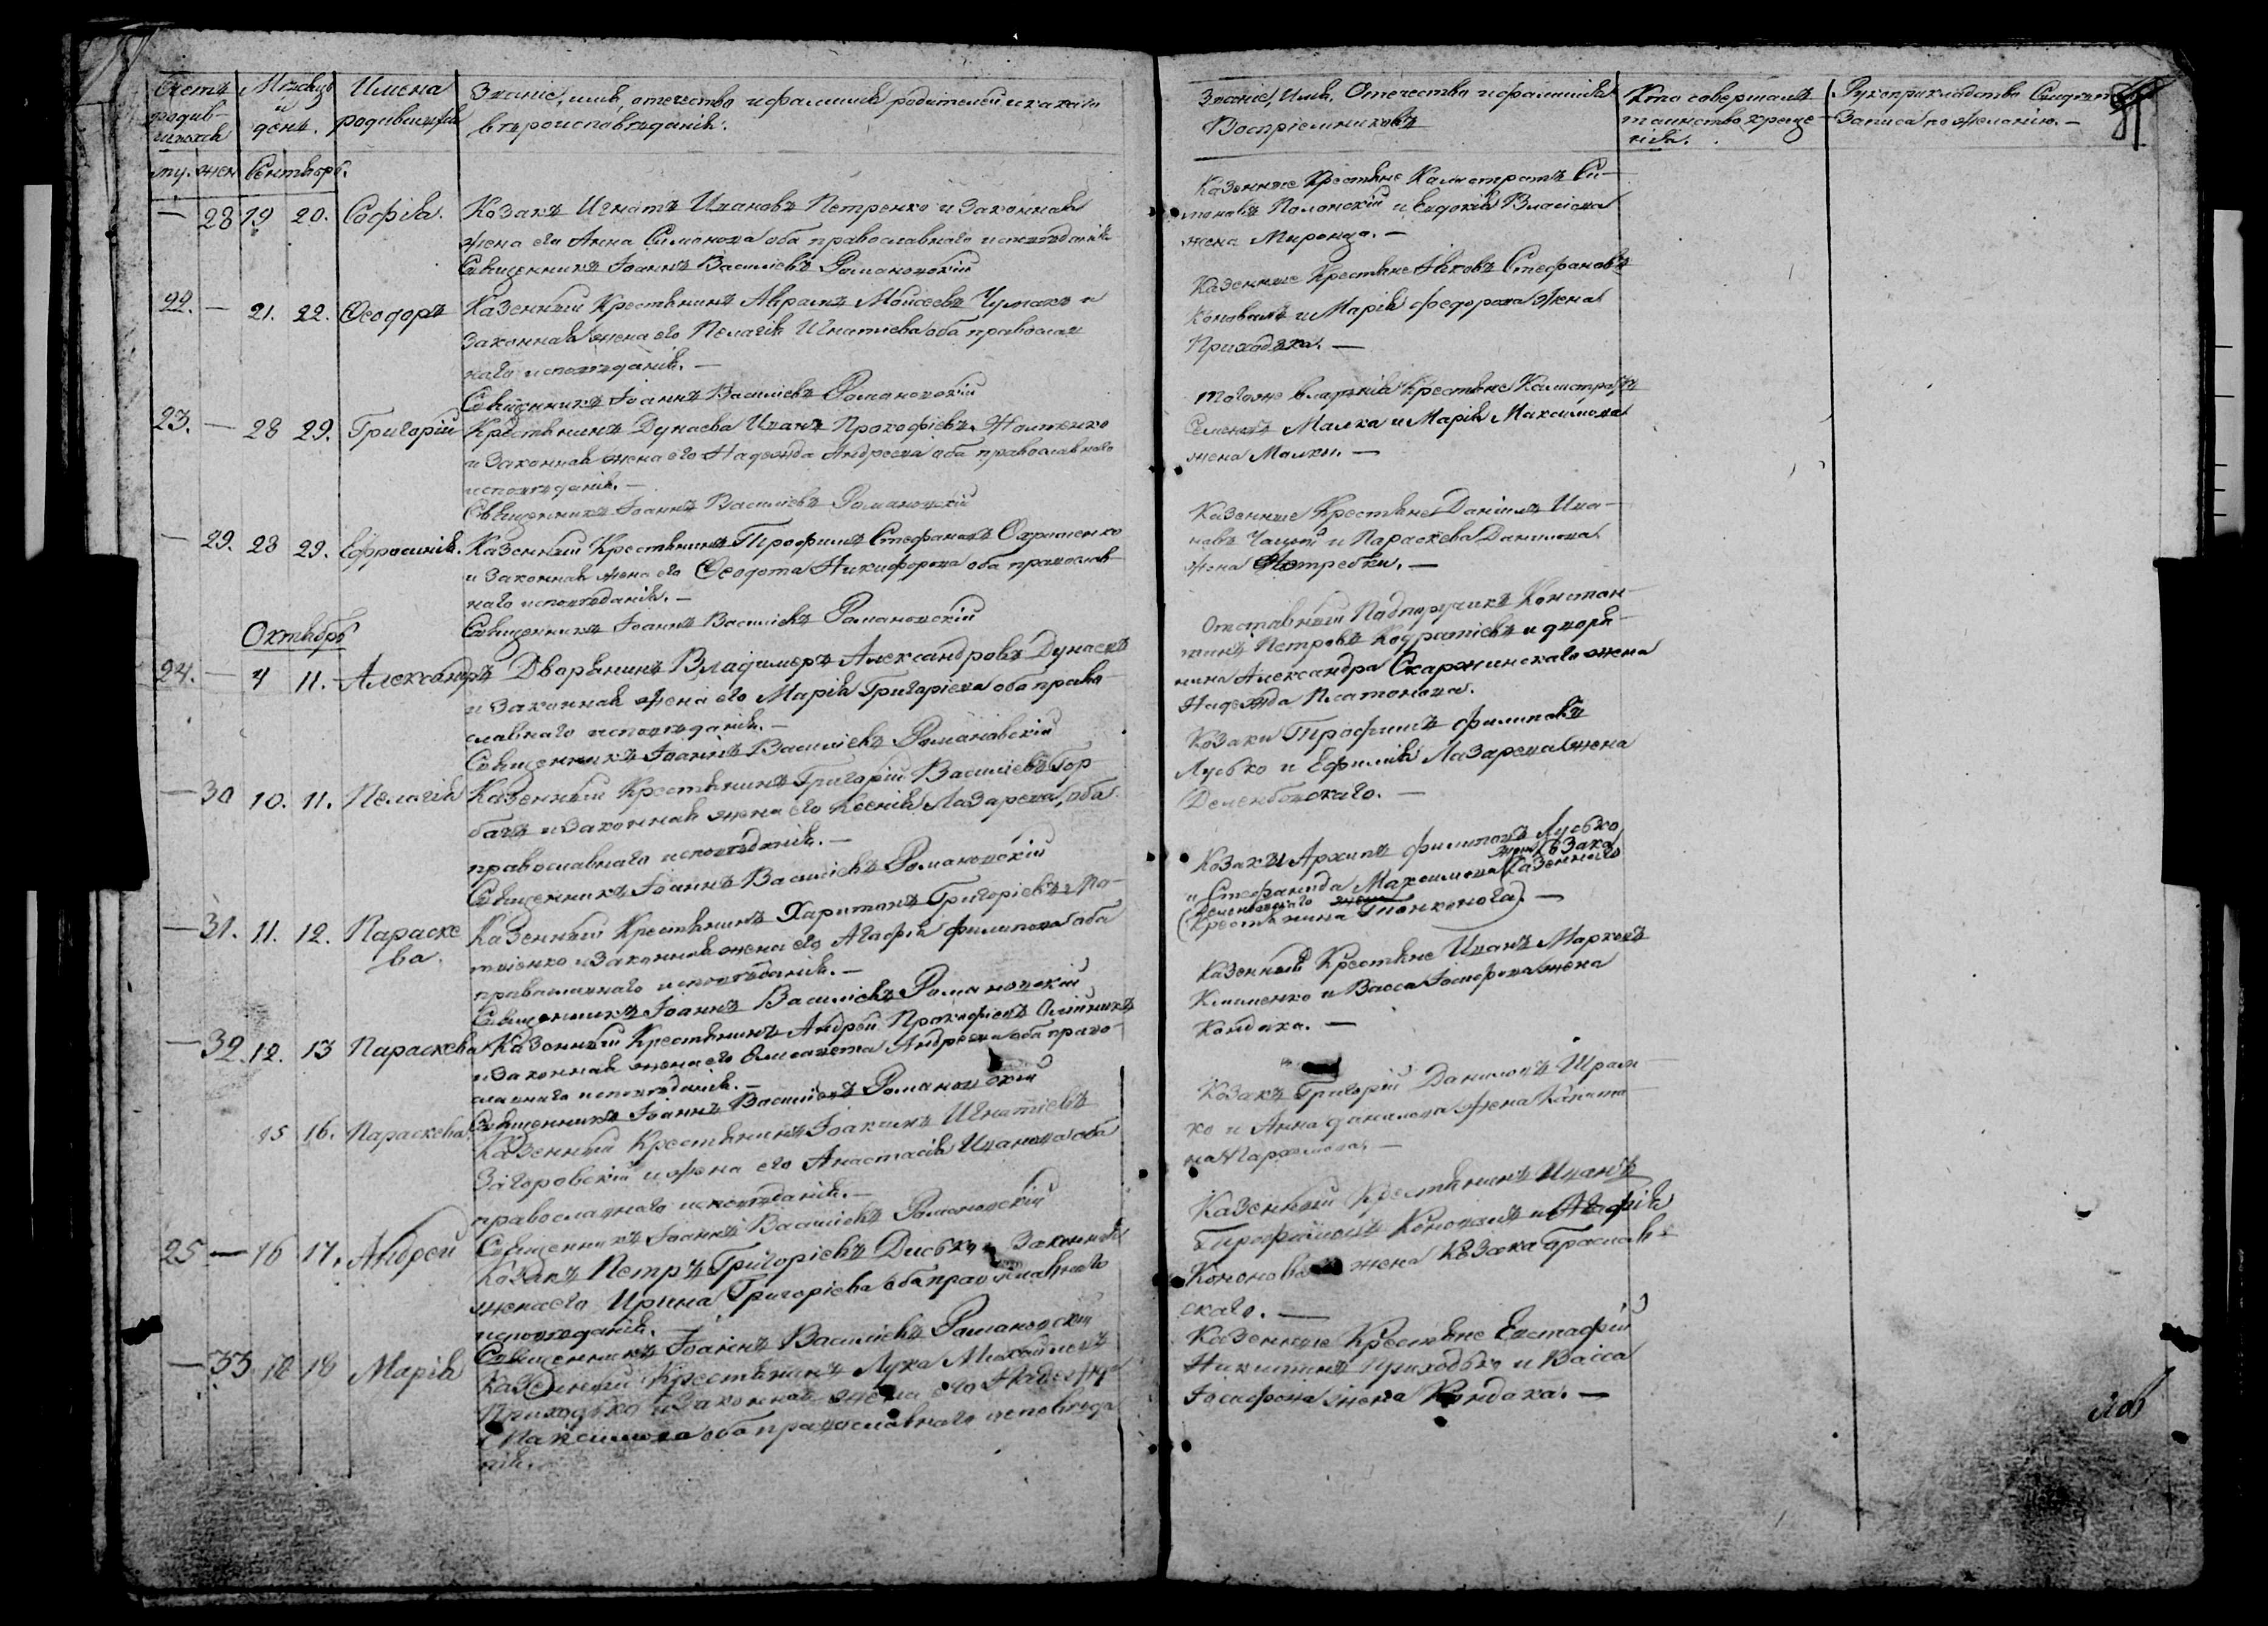 Счетъ родив-шихся
Мѣсяцъ и день.
Имена родившихся
Званіе, имя, отечество и фамилія родителей и какого
вѣроисповѣданія.
му. жен Сентябрь.
— 28 19 20. Софія. Козакъ Игнатъ Ивановъ Петренко и Законная
жена его Анна Симонова оба православнаго исповѣданія
Священникъ Іоаннъ Василіевъ Романовскій
22. — 21. 22. Ѳеодоръ Казенный Крестянинъ Аврамъ Моисеевъ Чумакъ и
Законная жена его Пелагія Игнатіева оба православ
наго исповѣданія. —
Священникъ Іоаннъ Василіевъ Романовскій
23. — 28 29. Григорій Крестянинъ Дунаева Иванъ Прокофіевъ
и Законная жена его Надежда Андреева оба православнаго
исповѣданія. —
Священникъ Іоаннъ Василіевъ Романовскій
— 29. 28 29. Ефросинія. Казенный Крестянинъ Трофимъ Стефановъ Охрименко
и Законная жена его Ѳеодота Никифорова оба православ
наго исповѣданія. —
Священникъ Іоаннъ Василіевъ Романовскій
Октябрь
24. — 4 11. Александръ Дворянинъ Владимеръ Александровъ Дунаевъ
и Законная жена его Марія Григоріева оба право
славнаго исповѣданія. —
Священникъ Іоаннъ Василіевъ Романовскій
— 30 10. 11. Пелагія Казенный Крестянинъ Григорій Василіевъ Гор
бачъ и Законная жена его Ксенія Лазарева, оба
православнаго исповѣданія. —
Священникъ Іоаннъ Василіевъ Романовскій
— 31. 11. 12. Параске
ва. Казенный Крестянинъ Харитонъ Григоріевъ
и Законная жена его Агафія Филипова оба
православнаго исповѣданія. —
Священникъ Іоаннъ Василіевъ Романовскій
— 32. 12. 13 Параскева Казенный Крестянинъ Андрей Прокофіевъ Олійникъ
и Законная жена его Елисавета Андреева оба право
славнаго исповѣданія. —
Священникъ Іоаннъ Василіевъ Романовскій
15 16. Параскева. Казенный Крестянинъ Іоакимъ Игнатіевъ
Загоровскій и жена его Анастасія Иванова оба
православнаго исповѣданія. —
Священникъ Іоаннъ Василіевъ Романовскій
25 — 16 17. Андрей Козакъ Петръ Григоріевъ Дисько и Законная
жена его Ирина Григоріева оба православнаго
исповѣданія. —
Священникъ Іоаннъ Василіевъ Романовскій
— 33 18 18 Марія Казенный Крестянинъ Лука Михайловъ
Приходько и Законная жена его Надежда
Максимова оба православнаго исповѣда
нія.
Званіе, Имя, Отечество и фамилія
Воспріемниковъ
Кто совершалъ
таинство креще
нія.
Рукоприкладство Свидѣтелей
Записа по желанію. —
Казенные Крестяне Калистратъ Си-
моновъ Полонскій и Евдокія Власіева
жена Миронца. —
Казенные Крестяне Яковъ Стефановъ
Коновалъ и Марія Федорова жена
Приходька. —
Тогоже владѣнія Крестяне Калистратъ
Семеновъ Малка и Марія Максимова
жена Малки. —
Казенные Крестяне Даніилъ Ива-
новъ и Параскева Данилова
жена —
Отставный Подпоручикъ Констан-
тинъ Петровъ Кодратіевъ и дворя-
нина Александра Скаржинскаго жена
Надежда Платонова.
Козаки Трофимъ Филиповъ
Лусько и Ефимія Лазарева жена
—
Козаки Архипъ Филиповъ Лусько
и Стефанида Максимова жена Козака
(Казеннаго
Крестянина Тонконога). —
Казенный Крестяне Иванъ Марковъ
Клименко и Васса Іосифова жена
Кондака. —
Козакъ Григорій Даниловъ Шрам
ко и Анна Данилова жена
—
Казенный Крестянинъ Иванъ
Трофимовъ Коновалъ и Агафія
Кононова жена Козака Браслав-
скаго. —
Казенные Крестяне Евстафій
Никитинъ Приходько и Васса
Іосифова жена Кондака. —